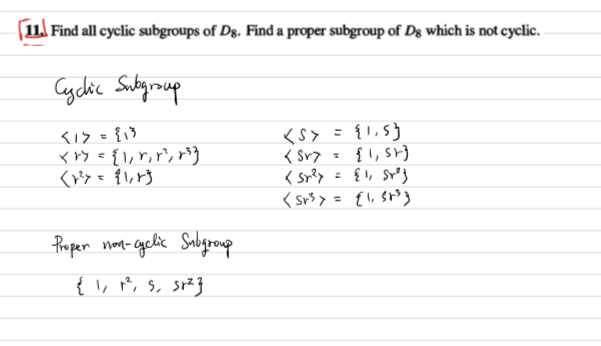 11. Find all cyclic subgroups of D₈. Find a proper subgroup of D₈ which is not cyclic.
Cyclic Subgroup
<1> = {1}
<r> = {1, r, r², r³}
<r²> = {1, r}
<s> = {1, s}
<sr> = {1, sr}
<sr²> = {1, sr²}
<sr³> = {1, sr³}
Proper non-cyclic Subgroup
{ 1, r², s, sr²}